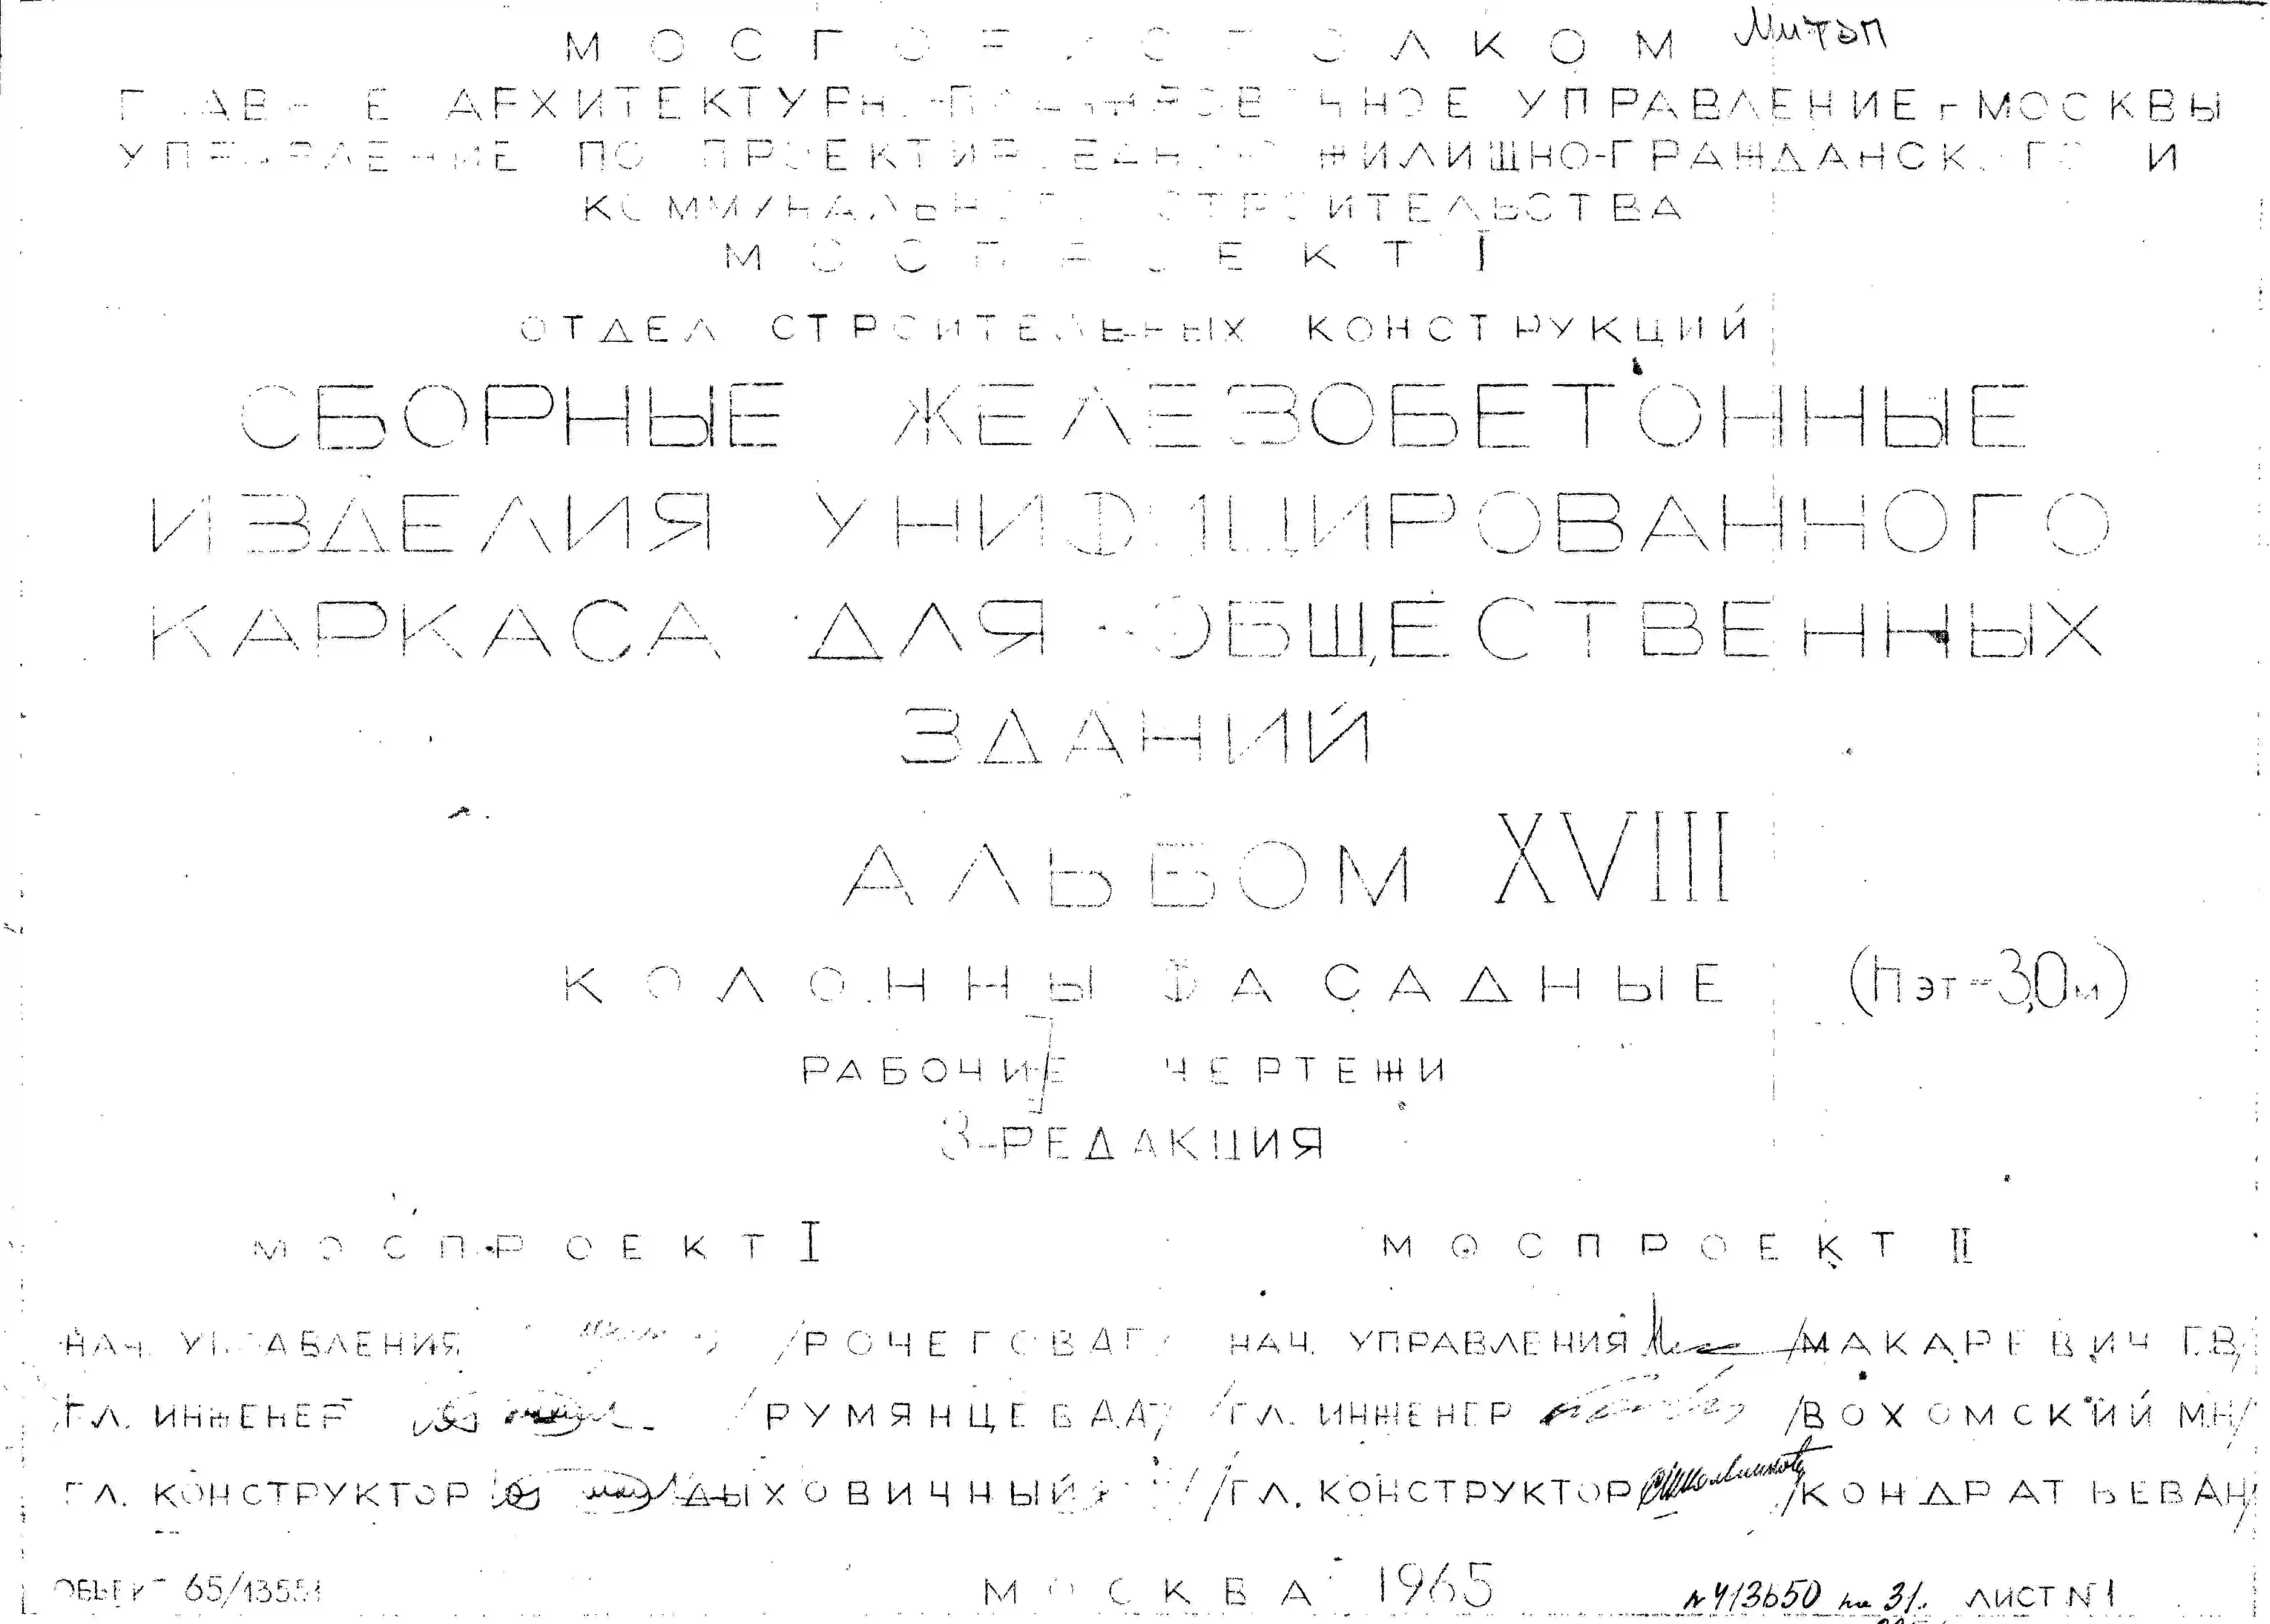 МОСГОРИСПОЛКОМ МИТЭП
ГЛАВНОЕ АРХИТЕКТУРНО-ПЛАНИРОВОЧНОЕ УПРАВЛЕНИЕ г. МОСКВЫ
УПРАВЛЕНИЕ ПО ПРОЕКТИРОВАНИЮ ЖИЛИЩНО-ГРАЖДАНСКОГО И
КОММУНАЛЬНОГО СТРОИТЕЛЬСТВА
МОСПРОЕКТ I
ОТДЕЛ СТРОИТЕЛЬНЫХ КОНСТРУКЦИЙ
СБОРНЫЕ ЖЕЛЕЗОБЕТОННЫЕ
ИЗДЕЛИЯ УНИФИЦИРОВАННОГО
КАРКАСА ДЛЯ ОБЩЕСТВЕННЫХ
ЗДАНИЙ
АЛЬБОМ XVIII
КОЛОННЫ ФАСАДНЫЕ (Hэт=3,0м)
РАБОЧИЕ ЧЕРТЕЖИ
3-РЕДАКЦИЯ
МОСПРОЕКТ I МОСПРОЕКТ II
НАЧ. УПРАВЛЕНИЯ /РОЧЕГОВ А.Г./ НАЧ. УПРАВЛЕНИЯ /МАКАРЕВИЧ Г.В./
ГЛ. ИНЖЕНЕР /РУМЯНЦЕВ А.А./ ГЛ. ИНЖЕНЕР /ВОХОМСКИЙ М.Н./
ГЛ. КОНСТРУКТОР /ДЫХОВИЧНЫЙ / ГЛ. КОНСТРУКТОР /КОНДРАТЬЕВ А.Н./
ОБЪЕКТ 65/13551 МОСКВА 1965 ЛИСТ N 1